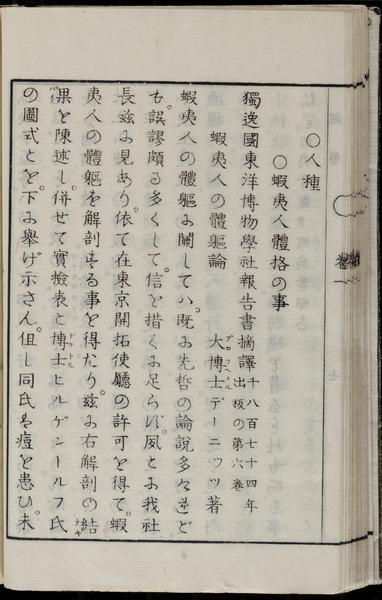 〇人種
〇蝦夷人體格の事
獨逸國東洋博物學社報告書摘譯 千八百七十四年出板の第六巻
蝦夷人の體軀論 大博士デーニッツ著
蝦夷人の體軀に關してハ。既に先哲の論説多々なれど
も。誤謬頗る多くして。信を措くに足らず。夙とに我社
長茲に見あり。依て在東京開拓使廳の許可を得て。蝦
夷人の體軀を解剖する事を得たり。茲に右解剖の結
果を陳述し。併せて實檢表と博士ヒルゲンドルフ氏
の圖式とを。下に舉げ示さん。但し同氏は痘を患ひ。未